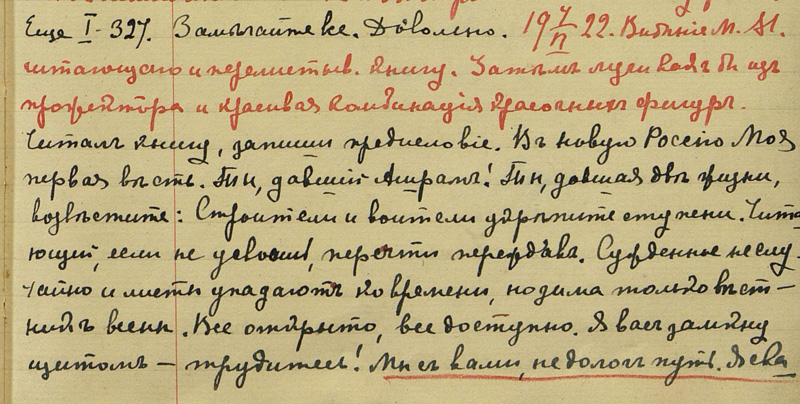 Еще I-327. Замѣчайте все. Довольно. 19 7/II 22. Видѣніе М. М.
читающаго и перелистыв. книгу. Затѣмъ лучи какъ бы изъ
прожектора и красивая комбинація красочныхъ фигуръ.
Читалъ книгу, запиши предисловіе. Въ новую Россію Моя
первая вѣсть. Ты, давшій Ашрамъ! Ты, давшая двѣ жизни,
возвѣстите: Строители и воители укрѣпите ступени. Чита-
ющій, если не усвоишь, перечти, переждавъ. Сужденное не слу-
чайно и листы упадаютъ во времени, но зима только вѣст-
никъ весны. Все открыто, все доступно. Я васъ замкну
щитомъ — трудитесь! Мы съ вами, не дологъ путь. Я ска